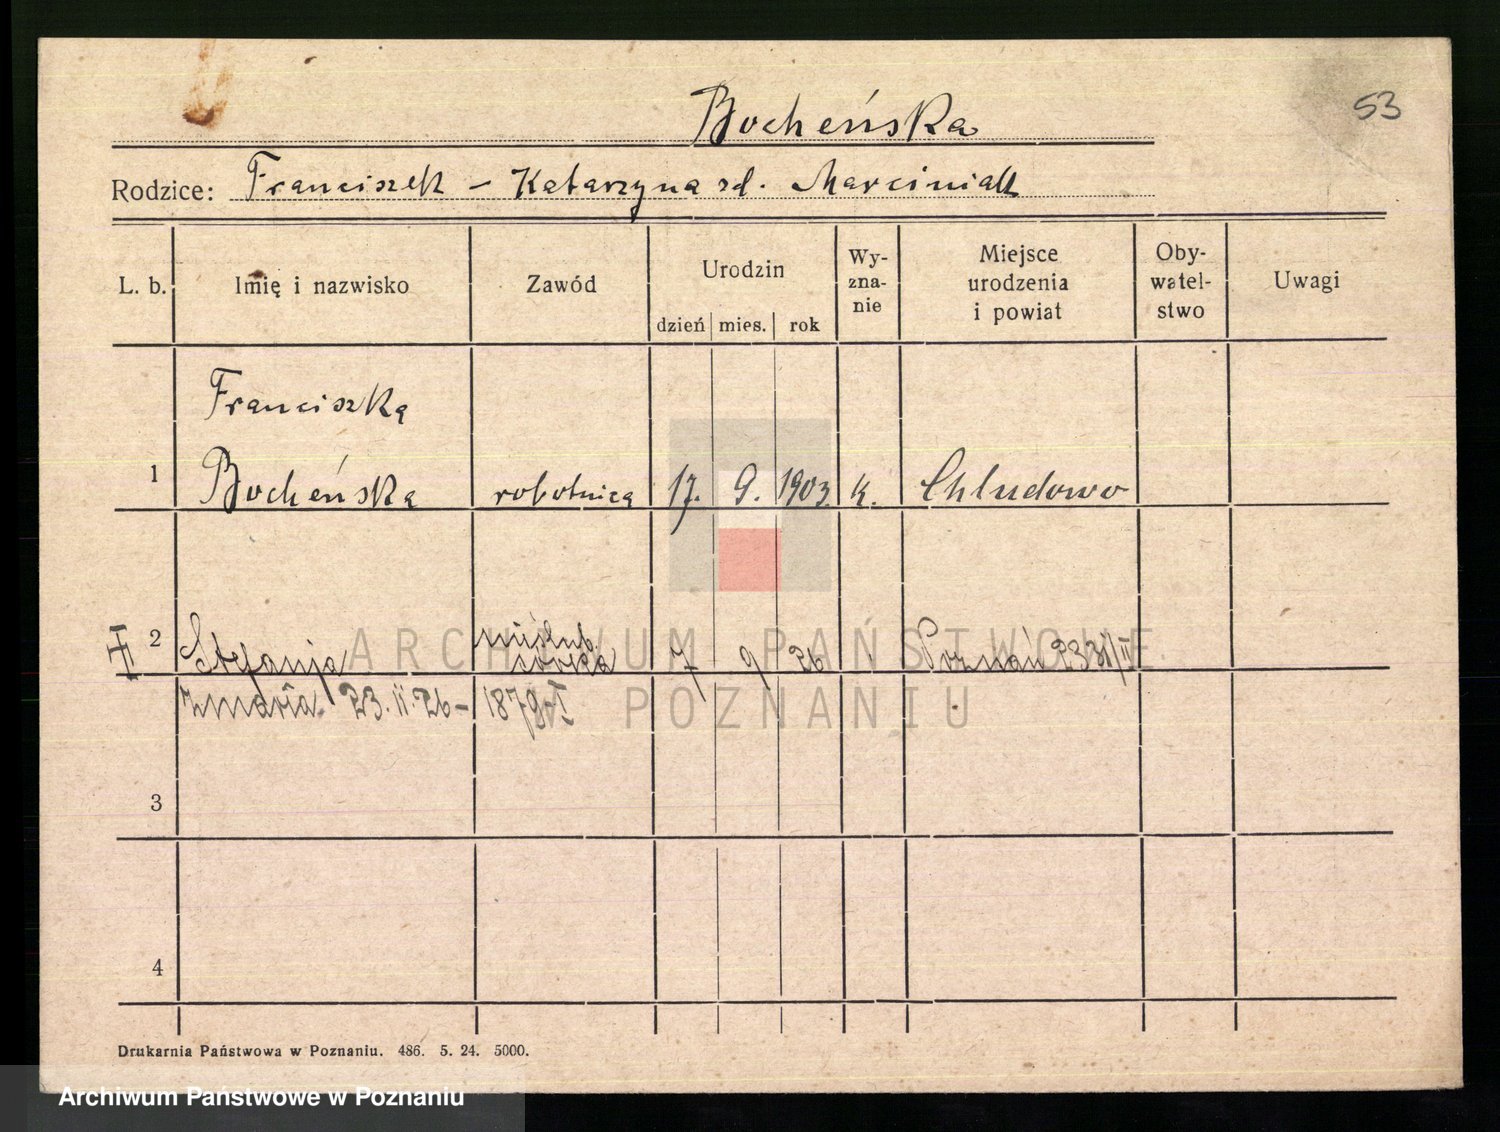 53
Bocheńska
Rodzice: Franciszek – Katarzyna zd. Marciniak
L. b. Imię i nazwisko Zawód Urodzin dzień mies. rok Wy- zna- nie Miejsce urodzenia i powiat Oby- watel- stwo Uwagi
Franciszka
1 Bocheńska robotnica 17. 9. 1903 k. Chludowo
nieślub.
2 Stefanja córka 7 9 26 Poznań 2331/II
zmarła 23. 11. 26 – 1879-I
ARCHIWUM PAŃSTWOWE
W POZNANIU
3
4
Drukarnia Państwowa w Poznaniu. 486. 5. 24. 5000.
Archiwum Państwowe w Poznaniu